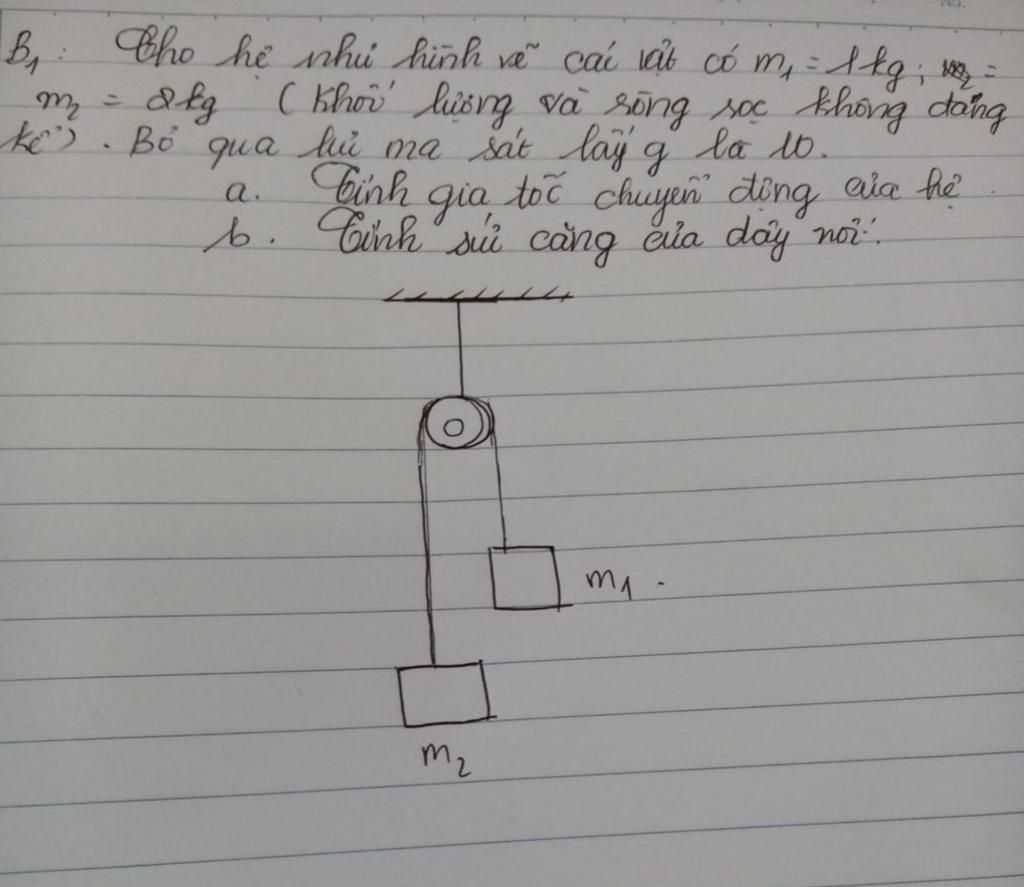 B₁: Cho hệ như hình vẽ các vật có m₁ = 1kg;
m₂ = 2kg (khối lượng và ròng rọc không đáng
kể). Bỏ qua lực ma sát lấy g là 10.
a. Tính gia tốc chuyển động của hệ.
b. Tính sức căng của dây nối.
m₁.
m₂